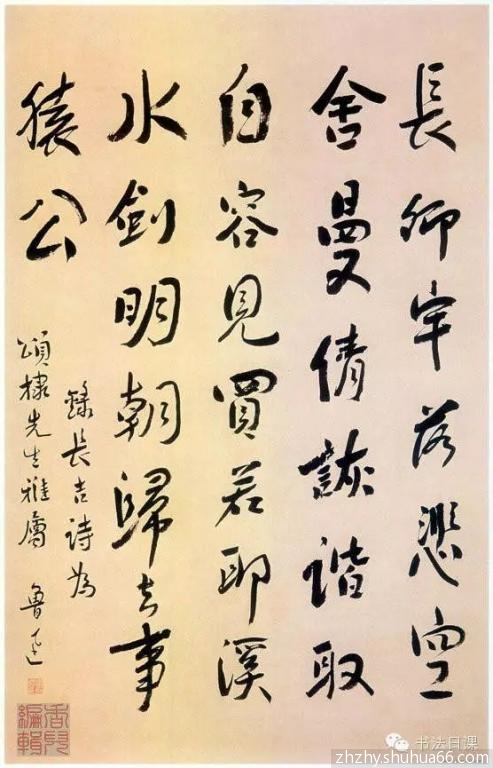 長卿牢落悲空
舍曼倩詼諧取
自容見買若耶溪
水劍明朝歸去事
猿公
錄長吉詩為
頌棣先生雅屬
魯迅
編輯
书法日课
zhzhy.shuhua66.com